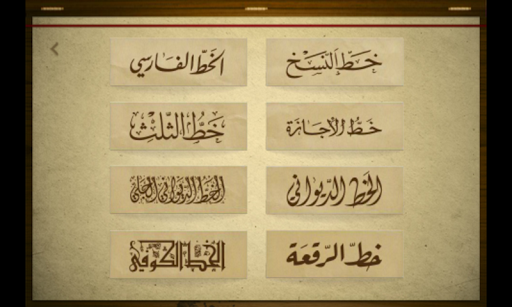 خط النسخ
الخط الفارسي
خط الأجازة
خط الثلث
الخط الديواني
الخط الديواني الجلي
خط الرقعة
الخط الكوفي